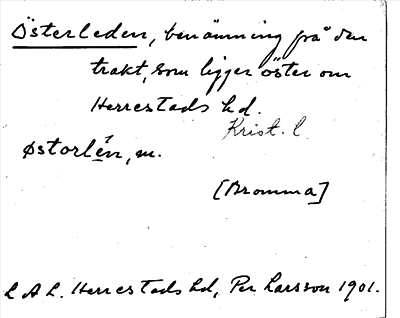 Österleden, benämning på den
trakt, som ligger öster om
Herrestads hd.
Krist. l.
østorlén, m.
[Bromma]
L A L. Herrestads hd, Per Larsson 1901.